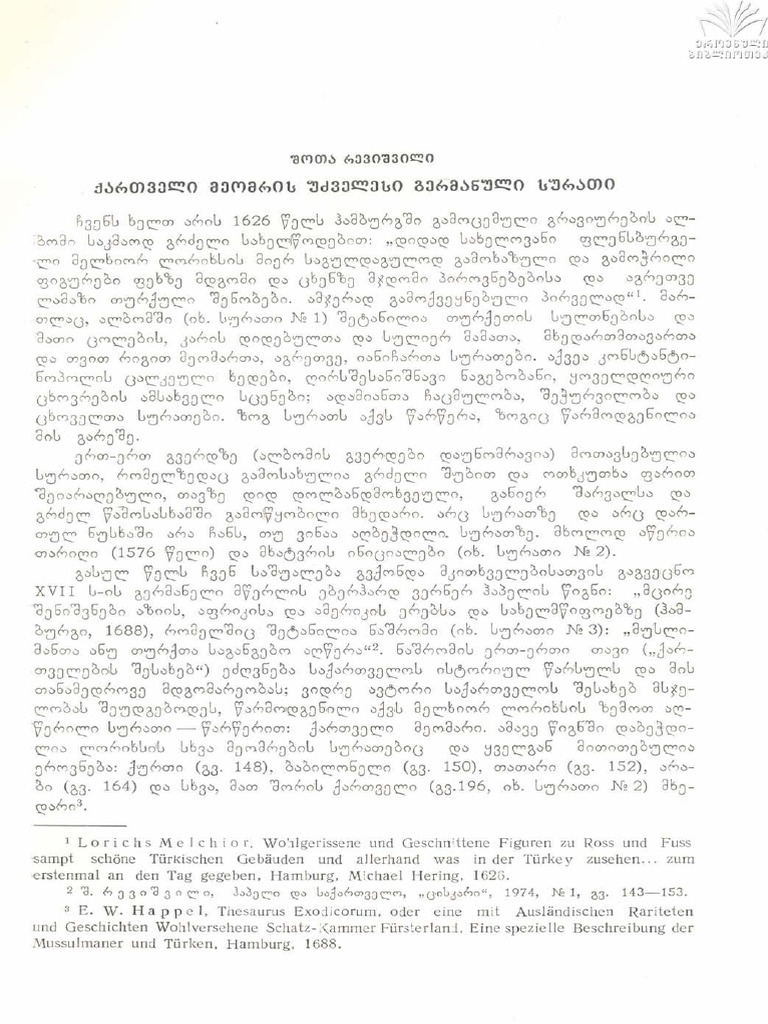 ეროვნული
ბიბლიოთეკა
შოთა რევიშვილი
ქართველი მეომრის უძველესი გერმანული სურათი
ჩვენს ხელთ არის 1626 წელს ჰამბურგში გამოცემული გრავიურების ალ-
ბომი საკმაოდ გრძელი სახელწოდებით: „დიდად სახელოვანი ფლენსბურგე-
ლი მელხიორ ლორიხსის მიერ საგულდაგულოდ გამოხაზული და გამოჭრილი
ფიგურები ფეხზე მდგომი და ცხენზე მჯდომი პიროვნებებისა და აგრეთვე
ლამაზი თურქული შენობები. ამჯერად გამოქვეყნებული პირველად“¹. მარ-
თლაც, ალბომში (იხ. სურათი № 1) შეტანილია თურქეთის სულთნებისა და
მათი ცოლების, კარის დიდებულთა და სულიერ მამათა, მხედართმთავართა
და თვით რიგით მეომართა, აგრეთვე, იანიჩართა სურათები. აქვეა კონსტანტი-
ნოპოლის ცალკეული ხედები, ღირსშესანიშნავი ნაგებობანი, ყოველდღიური
ცხოვრების ამსახველი სცენები; ადამიანთა ჩაცმულობა, შეჭურვილობა და
ცხოველთა სურათები. ზოგ სურათს აქვს წარწერა, ზოგიც წარმოდგენილია
მის გარეშე.
ერთ-ერთ გვერდზე (ალბომის გვერდები დაუნომრავია) მოთავსებულია
სურათი, რომელზედაც გამოსახულია გრძელი შუბით და ოთხკუთხა ფარით
შეიარაღებული, თავზე დიდ დოლბანდმოხვეული, განიერ შარვალსა და
გრძელ წამოსასხამში გამოწყობილი მხედარი. არც სურათზე და არც დარ-
თულ ნუსხაში არა ჩანს, თუ ვინაა აღბეჭდილი. სურათზე. მხოლოდ აწერია
თარიღი (1576 წელი) და მხატვრის ინიციალები (იხ. სურათი № 2).
გასულ წელს ჩვენ საშუალება გვქონდა მკითხველებისათვის გაგვეცნო
XVII ს-ის გერმანელი მწერლის ებერჰარდ ვერნერ ჰაპელის წიგნი: „მცირე
შენიშვნები აზიის, აფრიკისა და ამერიკის ერებსა და სახელმწიფოებზე (ჰამ-
ბურგი, 1688), რომელშიც შეტანილია ნაშრომი (იხ. სურათი № 3): „მუსლი-
მანთა ანუ თურქთა საგანგებო აღწერა“². ნაშრომის ერთ-ერთი თავი („ქარ-
თველების შესახებ“) ეძღვნება საქართველოს ისტორიულ წარსულს და მის
თანამედროვე მდგომარეობას; ვიდრე ავტორი საქართველოს შესახებ მსჯე-
ლობას შეუდგებოდეს, წარმოდგენილი აქვს მელხიორ ლორიხსის ზემოთ აღ-
წერილი სურათი — წარწერით: ქართველი მეომარი. ამავე წიგნში დაბეჭდი-
ლია ლორიხსის სხვა მეომრების სურათებიც და ყველგან მითითებულია
ეროვნება: ქურთი (გვ. 148), ბაბილონელი (გვ. 150), თათარი (გვ. 152), არა-
ბი (გვ. 164) და სხვა, მათ შორის ქართველი (გვ.196, იხ. სურათი № 2) მხე-
დარი³.
¹ Lorichs Melchior, Wohlgerissene und Geschnittene Figuren zu Ross und Fuss
sampt schöne Türkischen Gebäuden und allerhand was in der Türkey zusehen... zum
erstenmal an den Tag gegeben, Hamburg, Michael Hering, 1626.
² შ. რევიშვილი, ჰაპელი და საქართველო, „ცისკარი“, 1974, № 1, გვ. 143—153.
³ E. W. Happel, Thesaurus Exodicorum, oder eine mit Ausländischen Rariteten
und Geschichten Wohlversehene Schatz-Kammer Fürsterland, Eine spezielle Beschreibung der
Mussulmaner und Türken, Hamburg, 1688.